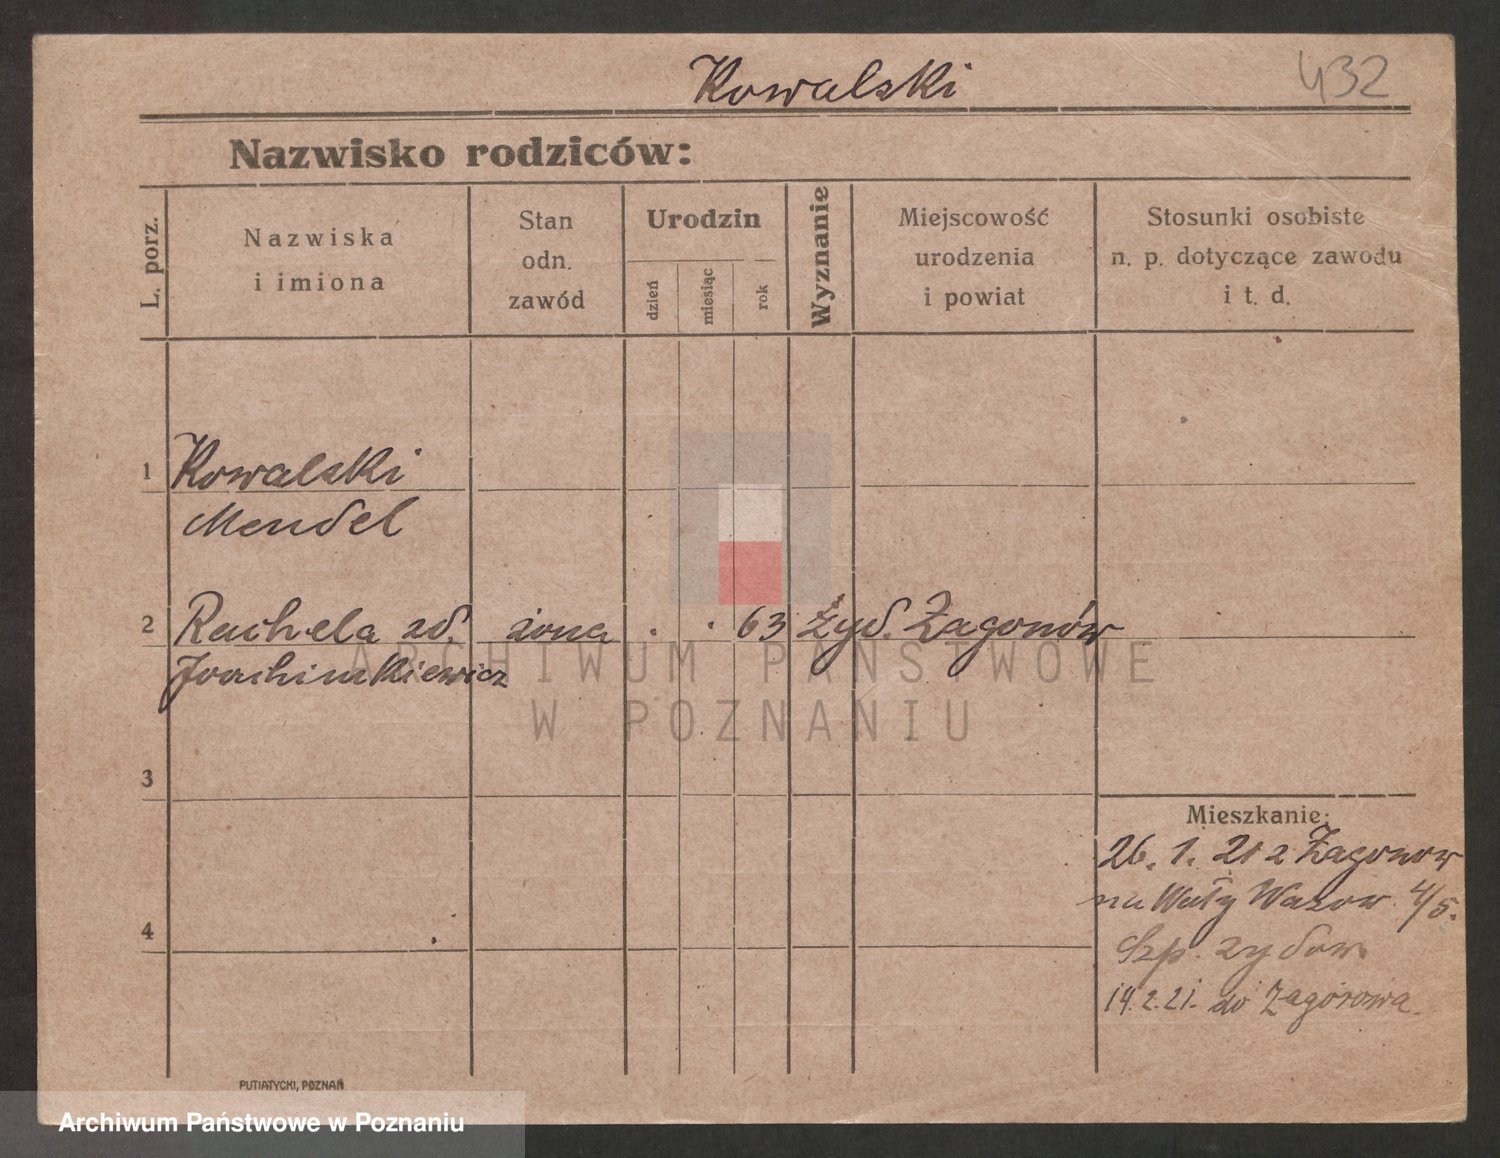 Kowalski
432
Nazwisko rodziców:
L. porz.
Nazwiska
i imiona
Stan
odn.
zawód
Urodzin
dzień
miesiąc
rok
Wyznanie
Miejscowość
urodzenia
i powiat
Stosunki osobiste
n. p. dotyczące zawodu
i t. d.
1
Kowalski
Mendel
2
Rachela zd. żona . . 63 Żyd. Zagórów
Joachimkiewicz
ARCHIWUM PAŃSTWOWE
W POZNANIU
3
4
Mieszkanie:
26. 1. 21 z Zagorow
na Wały Wazow. 4/5.
Szp. zydow.
14.2.21. do Zagorowa.
PUTIATYCKI, POZNAŃ
Archiwum Państwowe w Poznaniu